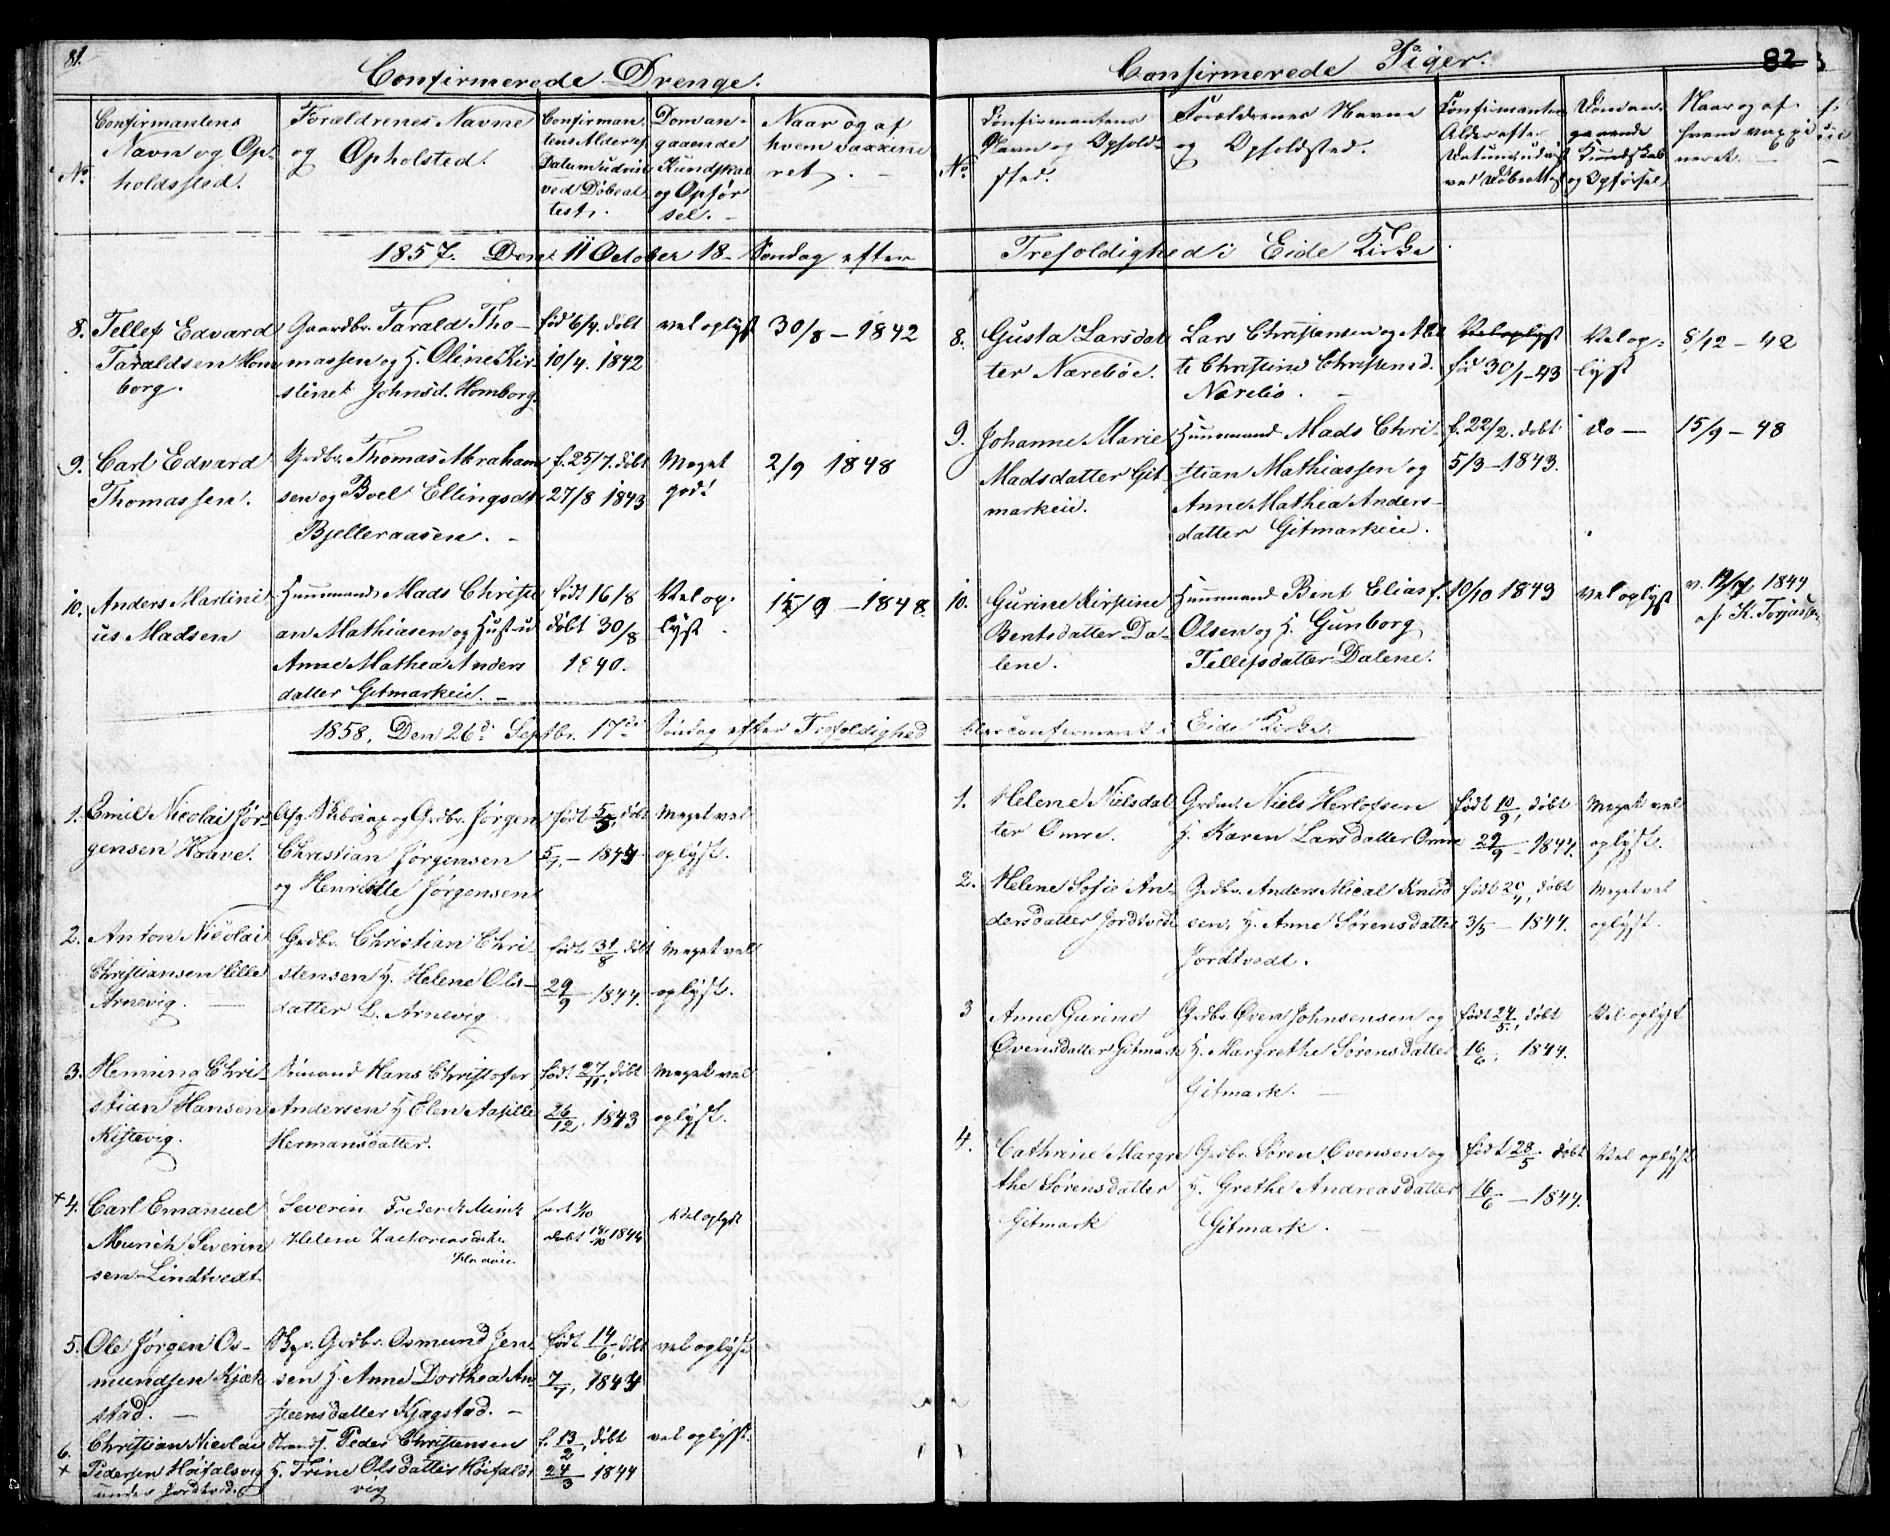 81.
Confirmerede Drenge.
No.
Confirmantens
Navn og Op-
holdssted.
Forældrenes Navne
og Opholsted.
Confirman-
tens Alder ef
Datum udvist
ved Døbeat-
test.
Dom an-
gaaende
Kundskab
og Opfør
sel.
Naar og af
hvem vaxine
ret.
1857. Den 11 October 18 Søndag efter
8. Tellef Edvard
Taraldsen Hom
borg.
Gaardbr. Tarald Tho-
massen og H. Oline Kir-
stine Johnsd. Homborg.
fød 6/4. døbt
10/4. 1842
vel oplyst
30/8 - 1842
9. Carl Edvard
Thomassen.
Grdbr. Thomas Abraham
sen og Boel Ellingsdt
Bjelleraasen.
f. 25/7. døbt
27/8 1843
Meget
god!
2/9 1848
10. Anders Martini
us Madsen
Huusmand Mads Christi
an Mathiasen og Hustru
Anne Mathea Anders
datter Gitmarkeie.
født 16/8
døbt 30/8
1840.
Vel op-
lyst
15/9 - 1848.
1858. Den 26de Septbr. 17de Søndag efter Trefoldighed
1. Emil Nicolai Jør-
gensen Haave.
og Grdbr. Jørgen
Christian Jørgensen
og Henriette Jørgensen
født 5/5, døbt
5/7 - 1844
Meget vel
oplyst.
2. Anton Nicolai
Christiansen Lille
Arnevig.
Grdbr. Christian Chri-
stensen H. Helene Ols-
datter L. Arnevig
født 31/8 døbt
29/9 1844.
Meget vel
oplyst.
3. Henning Chri-
stian Hansen
Kistevig.
Sømand Hans Christofer
Andersen H. Elen Aasille
Hermansdatter.
født 27/11, døbt
26/12. 1843
Meget vel
oplyst.
+ 4. Carl Emanuel
Munch Severin
sen Lindtvedt
Severin Frederik Munch
Helene Zachariasdatr.
født 1/10
døbt 1844
Vel oplyst
5. Ole Jørgen Os-
mundsen Kjæk
stad.
Grdbr. Osmund Jen
sen H. Anne Dorthea An-
steensdatter Kjægstad.
født 14/6, døbt
7/7, 1844
vel oplyst
6. Christian Nicolai
+ Pedersen Høifalsvig
under Jordtvedt
Strands. Peder Christensen
H. Trine Olsdatter Høifalds
vig
f. 13/2, døbt
24/3 1844
vel oplyst.
82
Confirmerede Piger.
No
Confirmantens
Navn og Ophold-
sted.
Forældrenes Navne
og Opholdsted.
Confirmantens
Alder efter
Datum, udvist
ved Døbeattest
Dom an-
gaaende
Kundskab
og Opførsel
Naar og af
hvem vaxxi
neret
Trefoldighed i Eide Kirke
8. Gusta Larsdat
ter Nærebøe.
Lars Christiansen og
te Christine Christensd.
Nærebø.
Vel oplyst
fød 30/1-43
Vel op-
lyst
8/12 - 42
9. Johanne Marie
Madsdatter Git
markeie.
Huusmand Mads Chri-
stian Mathiassen og
Anne Mathea Anders-
datter Gitmarkeie.
f. 22/2. døbt
5/3-1843.
do
15/9 - 48
10. Gurine Kirstine
Bentsdatter Da-
lene.
Huusmand Bent Elias
Olsen og H. Gunborg
Tellefsdatter Dalene.
f. 10/10 1843
vel oplyst
v. 1844
af K. Torjusse
blev confirmeret i Eide Kirke.
1. Helene Nielsdat
ter Omre.
Grdmd. Niels Herlofsen
H. Karen Larsdatter Omre
født 10/9, døbt
29/9 - 1844.
Meget vel
oplyst.
2. Helene Sofie An-
dersdatter Jordtvedt
Grdbr. Anders Mical Knud
sen, H. Anne Sørensdatter
Jordtvedt.
født 20/4, døbt
3/5 - 1844.
Meget vel
oplyst.
3 Anne Gurine
Øvensdatter Gitmark
Grdbr. Øven Johnsensen og
H. Margrethe Sørensdatter
Gitmark.
født 24/5, døbt
16/6, 1844.
Vel oplyst
4. Cathrine Margre
the Sørensdatter
Gitmark
Grdbr. Søren Øvensen og
H. Grethe Andreasdatter
Gitmark.
født 28/5 døbt
16/6 - 1844.
Vel oplyst